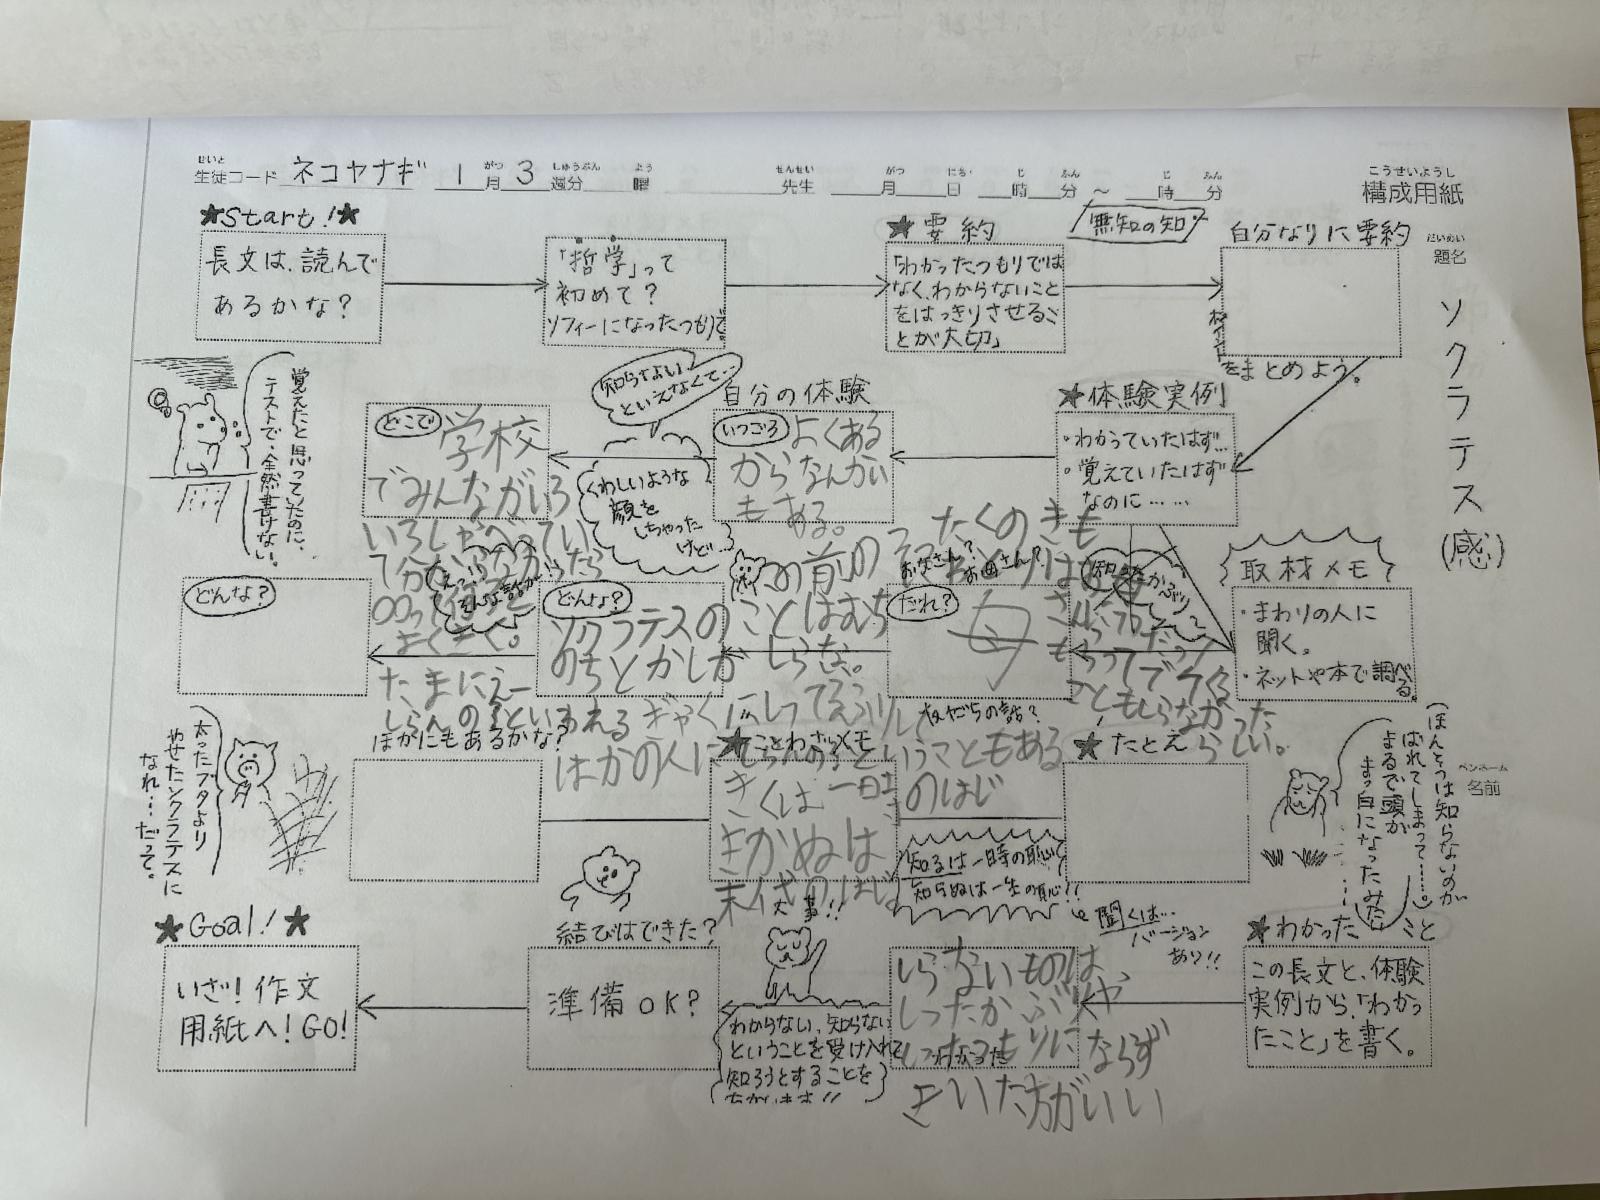 せいと
生徒コード ネコヤナギ 1月 3週分 曜
がつ しゅうぶん よう
せんせい がつ にち じ ふん じ ふん
先生 月 日 時 分 ～ 時 分
こうせいようし
構成用紙
だいめい
題名
ソクラテス(感)
ペンネーム
名前
★Start!★
長文は、読んで
あるかな?
「哲学」って
初めて?
ソフィーになったつもりで。
★要約
「わかったつもりでは
なく、わからないこと
をはっきりさせるこ
とが大切」
無知の知
自分なりに要約
ポイント
をまとめよう。
★体験実例
・わかっていたはず…
・覚えていたはず
なのに……
自分の体験
いつごろ
よくある
からなんかい
もある。
知らないよ
といえなくて…
くわしいような
顔を
しちゃった
けど…
どこで
学校
でみんながいろ
いろしゃべってい
て分からなかったら
まくきく。
たまにえー
しらんの?といわれる ぎゃくにしってるふりして
ほかの人にしらんの?ということもある
覚えたと思っていたのに、
テストで、全然書けない。
取材メモ
・まわりの人に
聞く。
・ネットや本で調べる。
お父さん?
お母さん?
だれ?
母
友だちの話?
どんな?
ソクラテスのことはむち
のちとかしか しらな。
どんな?
ほかにもあるかな?
★ことわざメモ
きくは一時 のはじ
きかぬは
末代のはじ
知るは一時の恥
知らぬは一生の恥!!
聞くは…
バージョン
あり!!
★たとえ
(ほんとうは知らないのが
ばれてしまって……。
まるで頭が
まっ白になったみたい
太ったブタより
やせたソクラテスに
なれ…だって。
★わかったこと
この長文と、体験
実例から、「わかっ
たこと」を書く。
しらないものは
しったかぶりや
しったつもりにならず
きいた方がいい
大事!!
わからない、知らない
ということを受け入れて
知ろうとすることを
結びはできた?
準備OK?
★Goal!★
いざ!作文
用紙へ!GO!